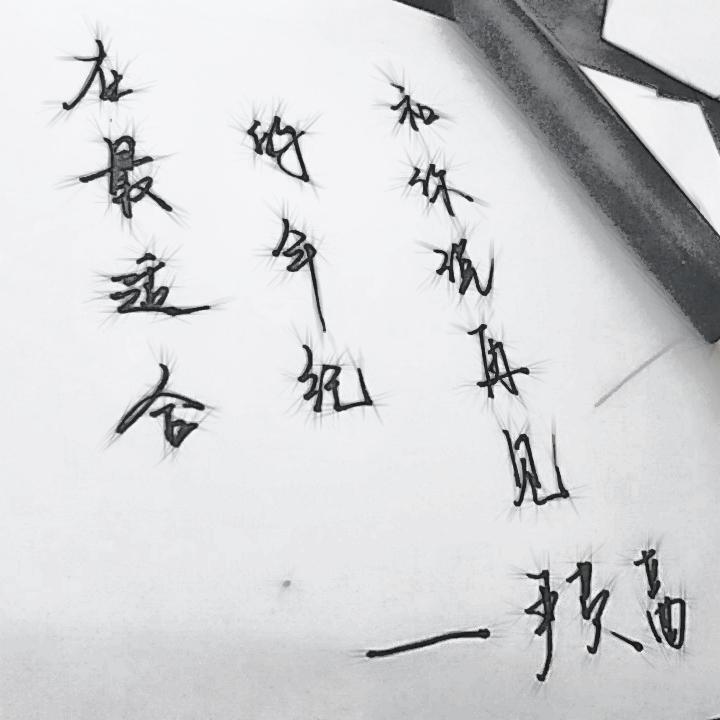 在最适合
的年纪
和你说再见